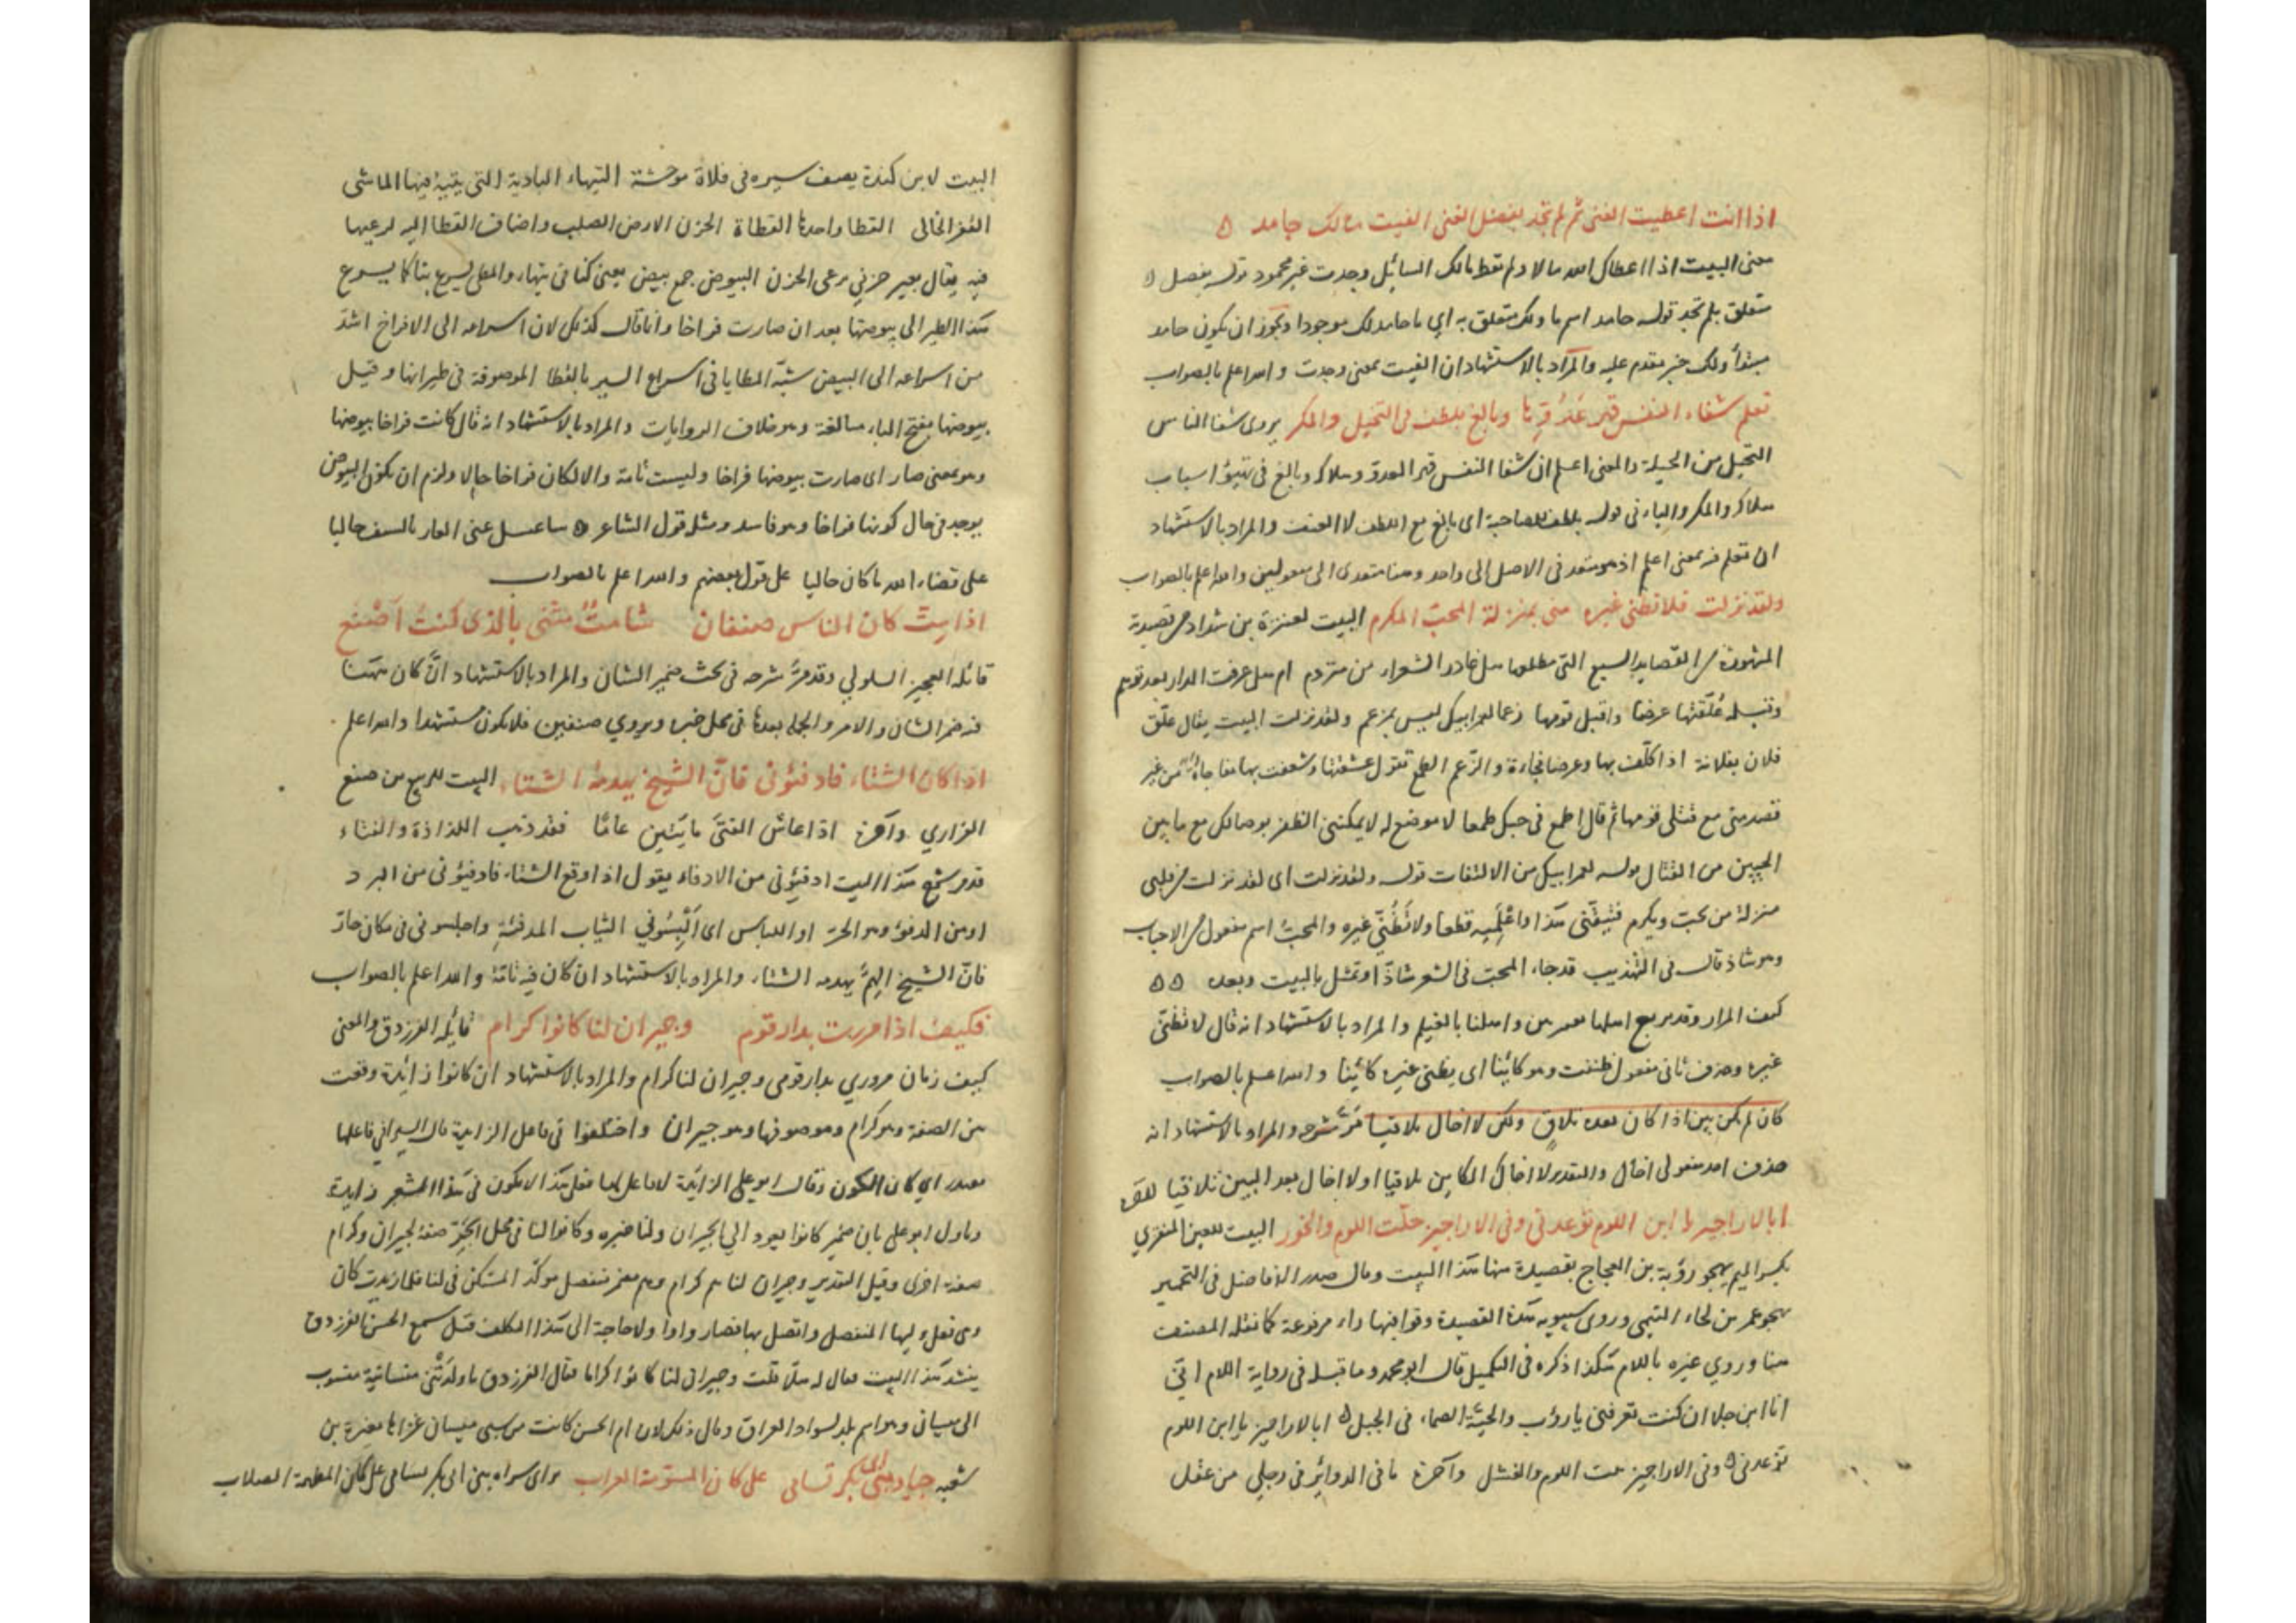 اذا انت اعطيت الغنى ثم لم تجد بفضل الغنى الفيت مالك حامد ه
معنى البيت اذا اعطاك الله مالا ولم تعط مالك السائل وجدت غير محمود قوله بفضل
متعلق بلم تجد قوله حامد اسم ما ولك متعلق به اي ما حامد لك موجودا ويجوز ان يكون حامد
مبتدأ ولك خبر مقدم عليه والمراد بالاستشهاد ان الفيت بمعنى وجدت والله اعلم بالصواب
تعلم شفاء النفس قهر عدوّها وبالغ بلطف فى التحيل والمكر يروى شفا الناس
التحيل من الحيلة والمعنى اعلم ان شفا النفس قهر العدو وهلاكه وبالغ فى تهيؤ اسباب
هلاكه والمكر والباء فى قوله بلطف للمصاحبة اى بالغ مع اللطف لا العنف والمراد بالاستشهاد
ان تعلم فيه بمعنى اعلم اذ هو متعد فى الاصل الى واحد وهنا متعدى الى مفعولين والله اعلم بالصواب
ولقد نزلت فلا تظنى غيره منى بمنزلة المحبّ المكرم البيت لعنترة بن شداد من قصيدته
المشهورة من القصايد السبع التى مطلعها هل غادر الشعراء من متردم ام هل عرفت الدار بعد توهم
وقبله عُلّقتها عرضًا واقتل قومها زعما لعمر ابيك ليس بمزعم ولقد نزلت البيت يقال علّق
فلان بفلانة اذا كلّف بها وعرضا فجاءة والزعم الطمع تقول عشقتها وشعفت بها مفاجأةً من غير
قصد منى مع قتلى قومها ثم قال اطمع فى حبك طمعا لا موضع له لا يمكننى الظفر بوصالك مع ما بين
الحيين من القتال قوله لعمر ابيك من الالتفات قوله ولقد نزلت اى لقد نزلت من قلبى
منزلة من يحبّ ويكرم فتيقّنى هذا واعْلَمِيه قطعا ولا تَظُنّي غيره والمحبّ اسم مفعول من الاحباب
وهو شاذ قال فى التهذيب قد جاء المحبّ فى الشعر شاذًّا وتمثل بالبيت وبعده ه ه
كيف المزار وقد تربع اهلها بعنيزتين واهلنا بالغيلم والمراد بالاستشهاد انه قال لا تظنّى
غيره وحذف ثانى مفعول ظننت وهو كائنا اى يظنى غيره كائنا والله اعلم بالصواب
كان لم يكن بين اذا كان بعده تلاقٍ ولكن لا اخال تلاقيا مَرّ شرحه والمراد بالاستشهاد انه
حذف احد مفعولى اخال والتقدير لا اخال الكائن تلاقيا او لا اخال بعد البين تلاقيا
ابالاراجيز يا ابن اللوم توعدنى وفى الاراجيز خلت اللوم والخور البيت للعين المنقري
بكسر الميم يهجو رؤبة بن العجاج بقصيدة منها هذا البيت وقال صدر الافاضل فى التخمير
يهجو عمر بن لجاء التيمى وروى سيبويه هذه القصيدة وقوافيها راء مرفوعة كما نقله المصنف
هنا وروي غيره باللام هكذا ذكره فى التكميل قال ابو محمد وما قبله فى رواية اللام انّى
انا ابن جلا ان كنت تعرفنى يا رؤب والحيّة الصماء فى الجبل ه ابالاراجيز يا ابن اللوم
توعدنى ه وفى الاراجيز خلت اللوم والفشل وآخره ما فى الدوائر فى رجلي من عقل
البيت لابن كنزة يصف سيره فى فلاة موحشة التيهاء البادية التى يتيه فيها الماشى
القفر الخالى القطا واحدها القطاة الحزن الارض الصلب واضاف القطا اليه لرعيها
فيه يقال بعير حزني يرعى الحزن البيوض جمع بيض يعنى كنا فى تيهاء والمطى يسرع بنا كما يسرع
هذا الطير الى بيوضها بعد ان صارت فراخا وانما قال كذلك لان اسراعه الى الافراخ اشدّ
من اسراعه الى البيض شبّه المطايا فى اسراع السير بالقطا الموصوفة فى طيرانها وقيل
بيوضها بفتح الباء مبالغة وهو خلاف الروايات والمراد بالاستشهاد انه قال كانت فراخا بيوضها
وهو بمعنى صار اى صارت بيوضها فراخا وليست تامة والا لكان فراخا حالا ولزم ان يكون البيوض
يوجد فى حال كونها فراخا وهو فاسد ومثله قول الشاعر ه ساغسل عنى العار بالسيف جالبا
على قضاء الله ما كان جالبا على قول بعضهم والله اعلم بالصواب
اذا متّ كان الناس صنفان شامتٌ مثنى بالذى كنت أصنع
قائله العجير السلولي وقد مرّ شرحه فى بحث ضمير الشان والمراد بالاستشهاد انّ كان ههنا
فيه ضمير الشان والامر والجملة بعدها فى محل خبره ويروي صنفين فلا يكون مستشهدا والله اعلم
اذا كان الشتاء فادفئونى فانّ الشيخ يهدمه الشتاء البيت للربيع بن ضبع
الفزاري وآخره اذا عاش الفتىَ مايتين عامًا فقد ذهب اللذاذة والفتاء
قد مر شرح هذا البيت ادفئونى من الادفاء يقول اذا وقع الشتاء فادفئونى من البرد
او من الدفؤ وهو الحر او اللباس اى اَلْبِسُوني الثياب المدفئة واجلسونى فى مكان حارّ
فانّ الشيخ الهِمَّ يهدمه الشتاء والمراد بالاستشهاد ان كان فيه تامّة والله اعلم بالصواب
فكيف اذا مررت بدار قوم وجيران لنا كانوا كرام قائله الفرزدق والمعنى
كيف زمان مروري بدار قومى وجيران لنا كرام والمراد بالاستشهاد ان كانوا زائدة وقعت
بين الصفة وهو كرام وموصوفها وهو جيران واختلفوا فى فاعل الزايدة قال السيرافي فاعلها
مصدر اي كان الكون وقال ابو على الزايدة لا فاعل لها فعلى هذا لا يكون فى هذا الشعر زايدة
وتاول ابو على بان ضمير كانوا يعود الي الجيران ولنا خبره وكانوا لنا فى محل الجرّ صفة لجيران وكرام
صفة اخرى وقيل التقدير وجيران لنا هم كرام وهم ضمير منفصل موكد المستكن فى لنا فلما زيدت كان
وهى فعل وليها المنفصل واتصل بها فصار واوا ولا حاجة الى هذا التكلف قيل سمع الحسن الفرزدق
ينشد هذا البيت فقال له هلّا قلت وجيران لنا كانوا كراما فقال الفرزدق ما ولدَتْنى ميسانية منسوب
الى ميسان وهو اسم بلد لسواد العراق وقال ذلك لان ام الحسن كانت من سبى ميسان غزاها مغيرة بن
شعبه جياد بنى ابى بكر تسامى على كان المسومة العراب وروى سراه بنى ابى بكر تسامى على كان المطهمة الصلاب